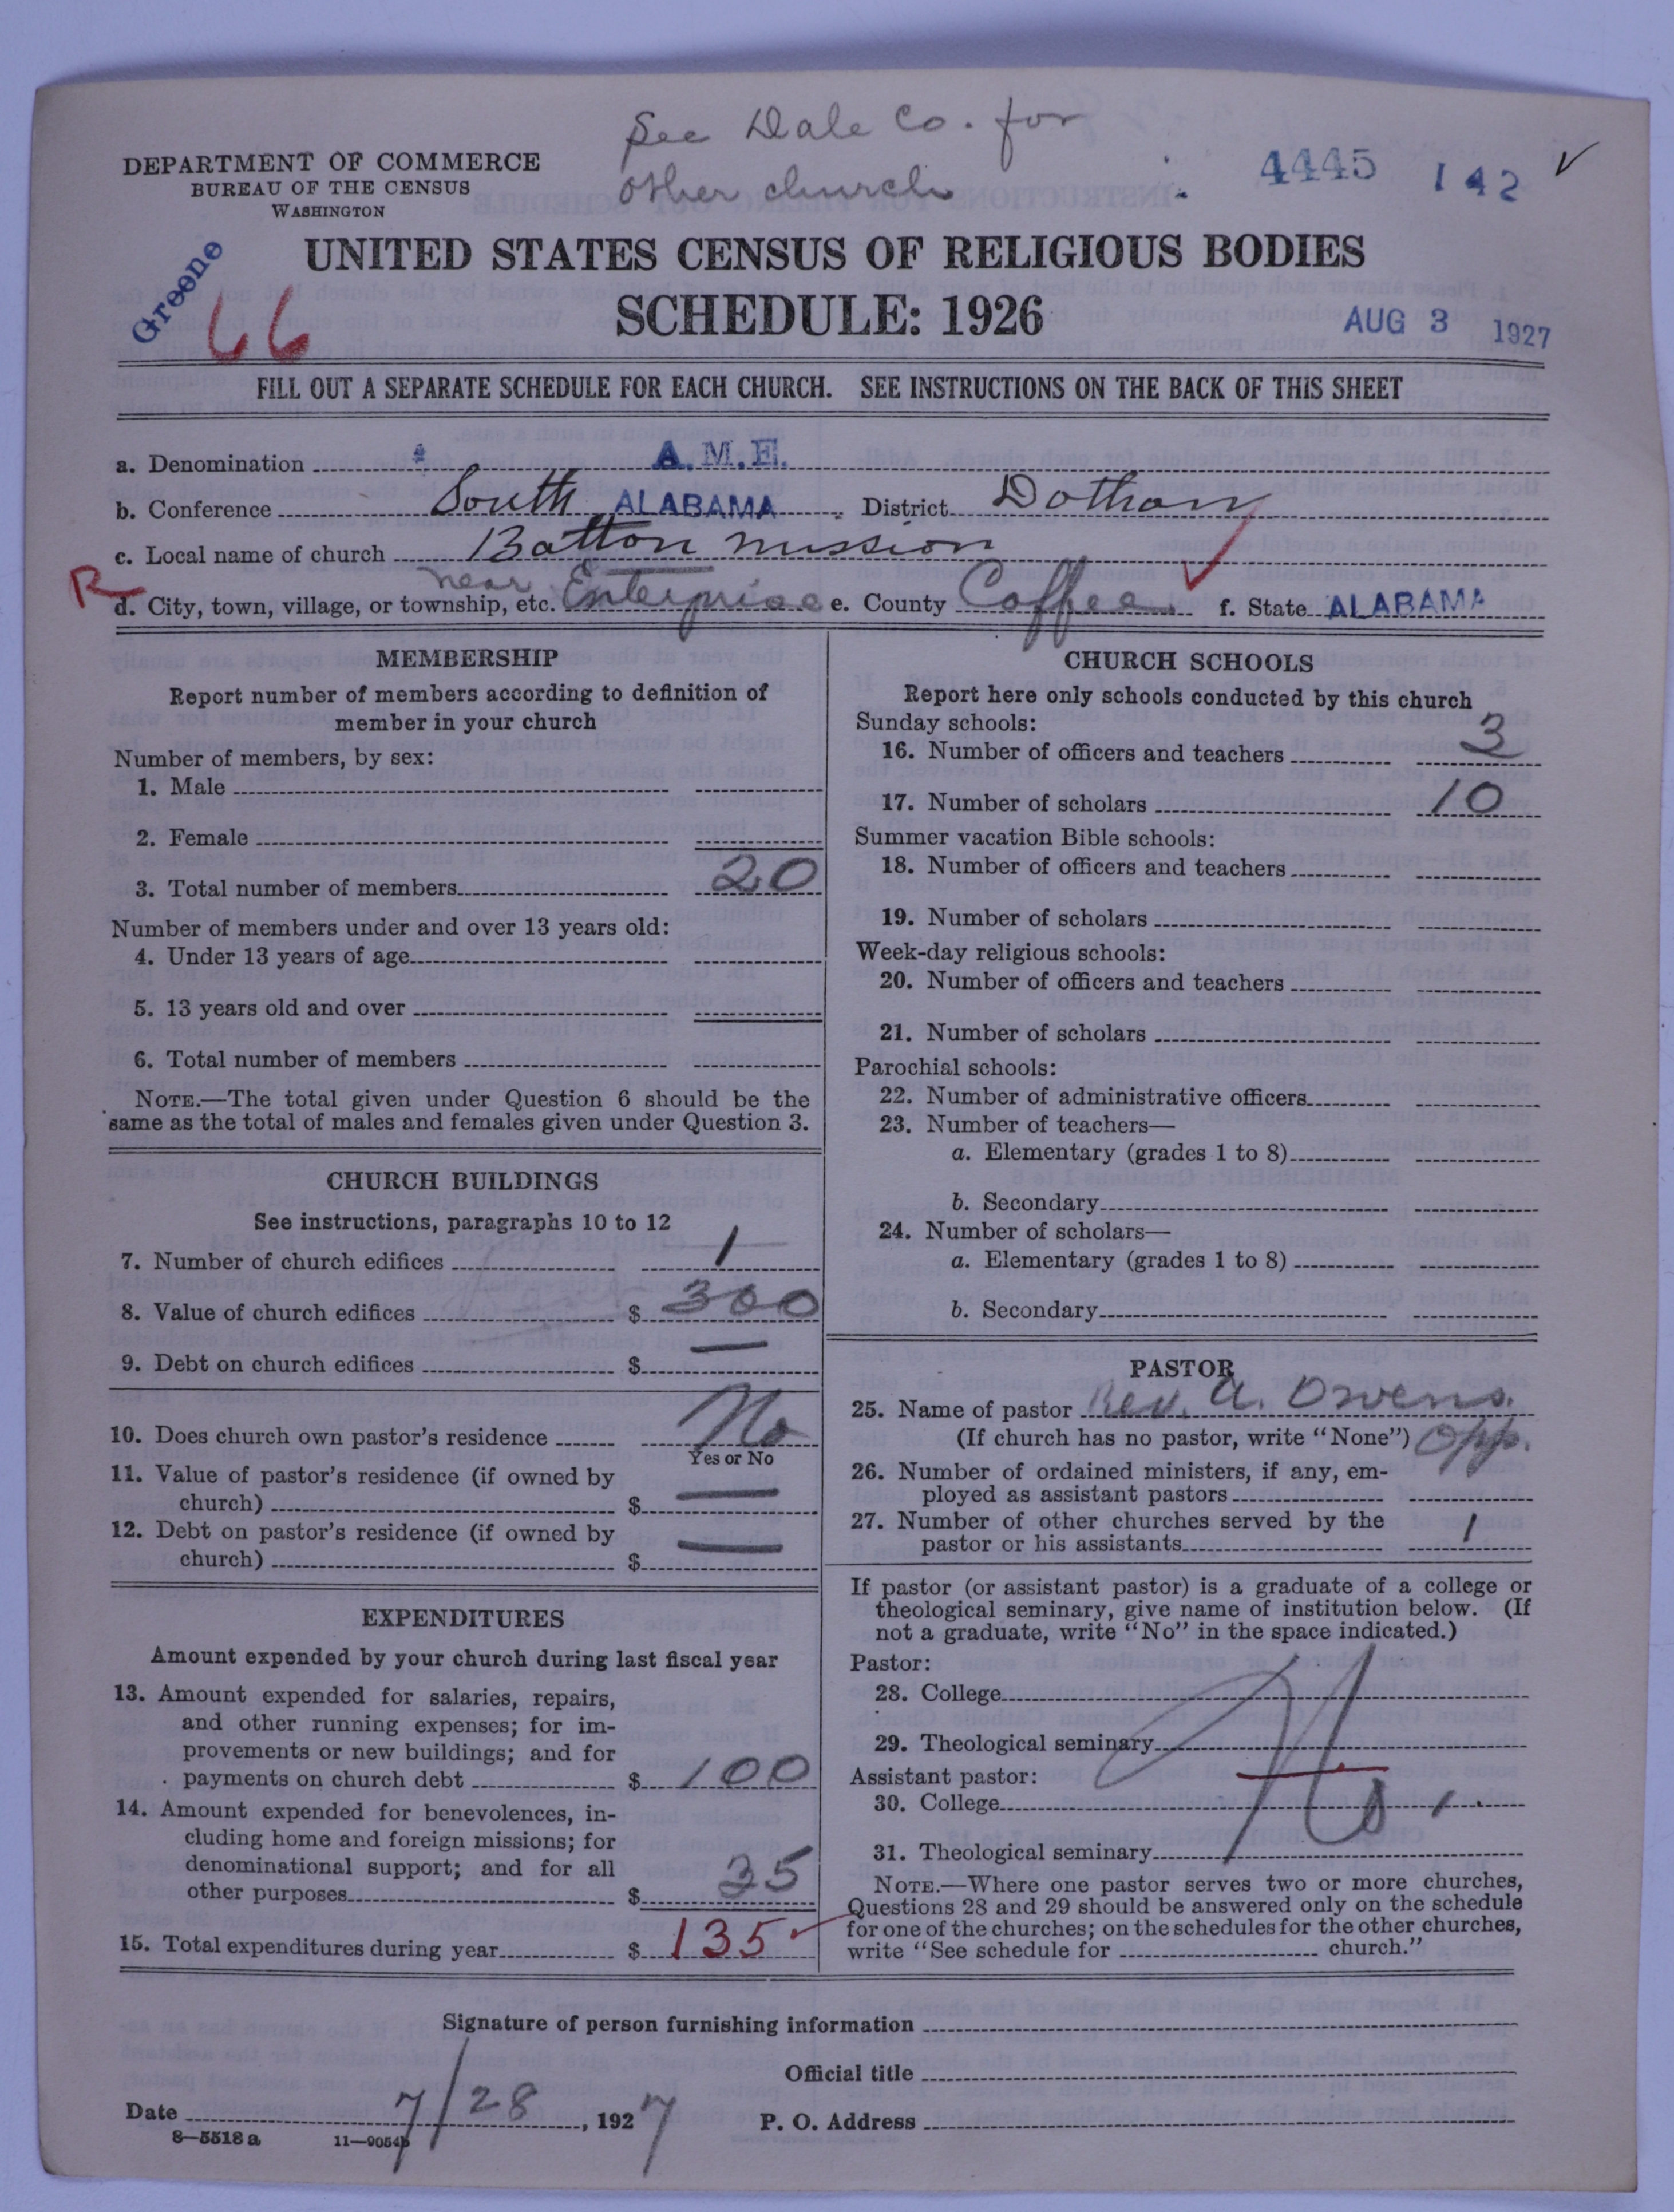 See Dale Co. for
other church
DEPARTMENT OF COMMERCE
BUREAU OF THE CENSUS
WASHINGTON
4445 142
Greene
66
UNITED STATES CENSUS OF RELIGIOUS BODIES
SCHEDULE: 1926
AUG 3 1927
FILL OUT A SEPARATE SCHEDULE FOR EACH CHURCH. SEE INSTRUCTIONS ON THE BACK OF THIS SHEET
a. Denomination A.M.E.
b. Conference South ALABAMA District Dothan
c. Local name of church Batton mission
R
d. City, town, village, or township, etc. near Enterprise e. County Coffee f. State ALABAMA
MEMBERSHIP
Report number of members according to definition of
member in your church
Number of members, by sex:
1. Male
2. Female
3. Total number of members 20
Number of members under and over 13 years old:
4. Under 13 years of age
5. 13 years old and over
6. Total number of members
NOTE.—The total given under Question 6 should be the
same as the total of males and females given under Question 3.
CHURCH BUILDINGS
See instructions, paragraphs 10 to 12
7. Number of church edifices 1
8. Value of church edifices $ 300
9. Debt on church edifices $ —
10. Does church own pastor's residence No
Yes or No
11. Value of pastor's residence (if owned by
church) $ —
12. Debt on pastor's residence (if owned by
church) $ —
EXPENDITURES
Amount expended by your church during last fiscal year
13. Amount expended for salaries, repairs,
and other running expenses; for im-
provements or new buildings; and for
payments on church debt $ 100
14. Amount expended for benevolences, in-
cluding home and foreign missions; for
denominational support; and for all
other purposes $ 35
15. Total expenditures during year $ 135
CHURCH SCHOOLS
Report here only schools conducted by this church
Sunday schools:
16. Number of officers and teachers 3
17. Number of scholars 10
Summer vacation Bible schools:
18. Number of officers and teachers
19. Number of scholars
Week-day religious schools:
20. Number of officers and teachers
21. Number of scholars
Parochial schools:
22. Number of administrative officers
23. Number of teachers—
a. Elementary (grades 1 to 8)
b. Secondary
24. Number of scholars—
a. Elementary (grades 1 to 8)
b. Secondary
PASTOR
25. Name of pastor Rev. A. Owens.
(If church has no pastor, write "None") Opp.
26. Number of ordained ministers, if any, em-
ployed as assistant pastors
27. Number of other churches served by the
pastor or his assistants 1
If pastor (or assistant pastor) is a graduate of a college or
theological seminary, give name of institution below. (If
not a graduate, write "No" in the space indicated.)
Pastor:
28. College
29. Theological seminary
No.
Assistant pastor:
30. College
31. Theological seminary
NOTE.—Where one pastor serves two or more churches,
Questions 28 and 29 should be answered only on the schedule
for one of the churches; on the schedules for the other churches,
write "See schedule for church."
Signature of person furnishing information
Official title
Date 7/28, 1927 P. O. Address
8—5518 a 11—9054b